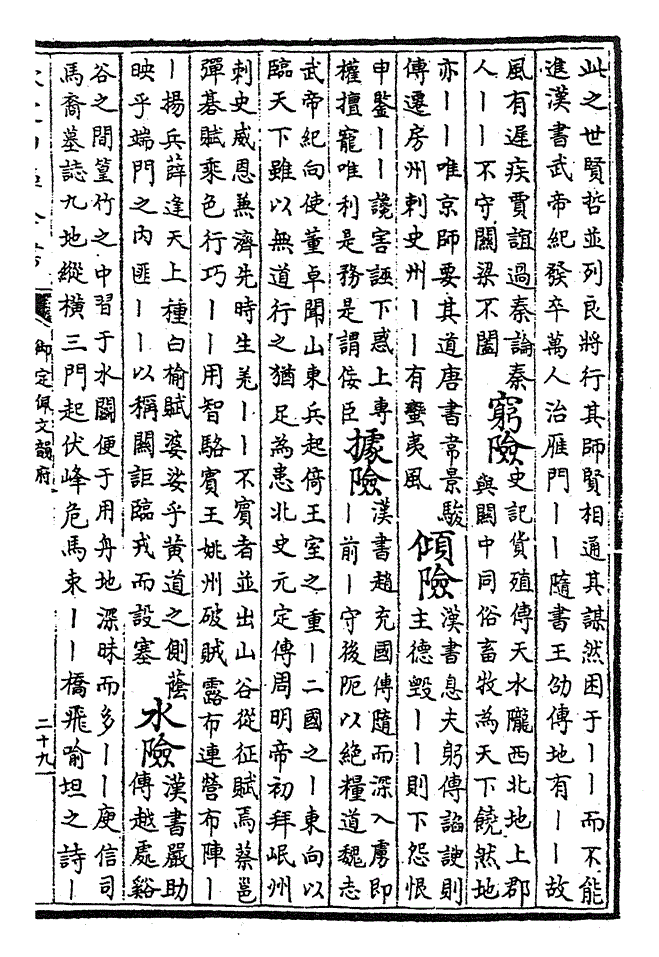 此之世賢哲並列良將行其師賢相通其謀然困于丨丨而不能
進漢書武帝紀發卒萬人治雁門丨丨隨書王劭傳地有丨丨故
風有遲疾賈誼過秦論秦
人丨丨不守關梁不闔
窮險
史記貨殖傳天水隴西北地上郡
與關中同俗畜牧為天下饒然地
亦丨丨唯京師要其道唐書常景駿
傳遷房州刺史州丨丨有蠻夷風
傾險
漢書息夫躬傳諂諛則
主德毀丨丨則下怨恨
申鑒丨丨讒害誣下惑上專
權擅寵唯利是務是謂佞臣
據險
漢書趙充國傳隨而深入虜即
丨前丨守後阨以絕糧道魏志
武帝紀向使董卓聞山東兵起倚王室之重丨二國之丨東向以
臨天下雖以無道行之猶足為患北史元定傳周明帝初拜岷州
刺史威恩兼濟先時生羌丨丨不賓者並出山谷從征賦焉蔡邕
彈碁賦乘色行巧丨丨用智駱賓王姚州破賊露布連營布陣丨
丨揚兵薛逢天上種白榆賦婆娑乎黃道之側蔭
映乎端門之內匪丨丨以稱關詎臨戎而設塞
水險
漢書嚴助
傳越處谿
谷之間篁竹之中習于水鬬便于用舟地深昧而多丨丨庾信司
馬裔墓誌九地縱橫三門起伏峰危馬束丨丨橋飛喻坦之詩丨
御定佩文韻府
二十九